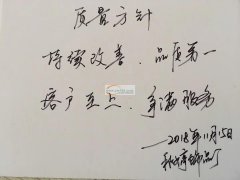 质量方针
持续改善、品质第一
客户至上、争满服务
—2018年11月15日
饰品厂